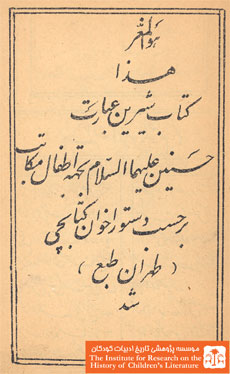 هوالمعز
هذا
کتاب شیرین عبارت
حسنین علیهما السلام بجهة اطفال مکاتب
برحسب دستور اخوان کتابچی
( طهران طبع )
شد
موسسه پژوهشی تاریخ ادبیات کودکان
The Institute for Research on the
History of Children's Literature